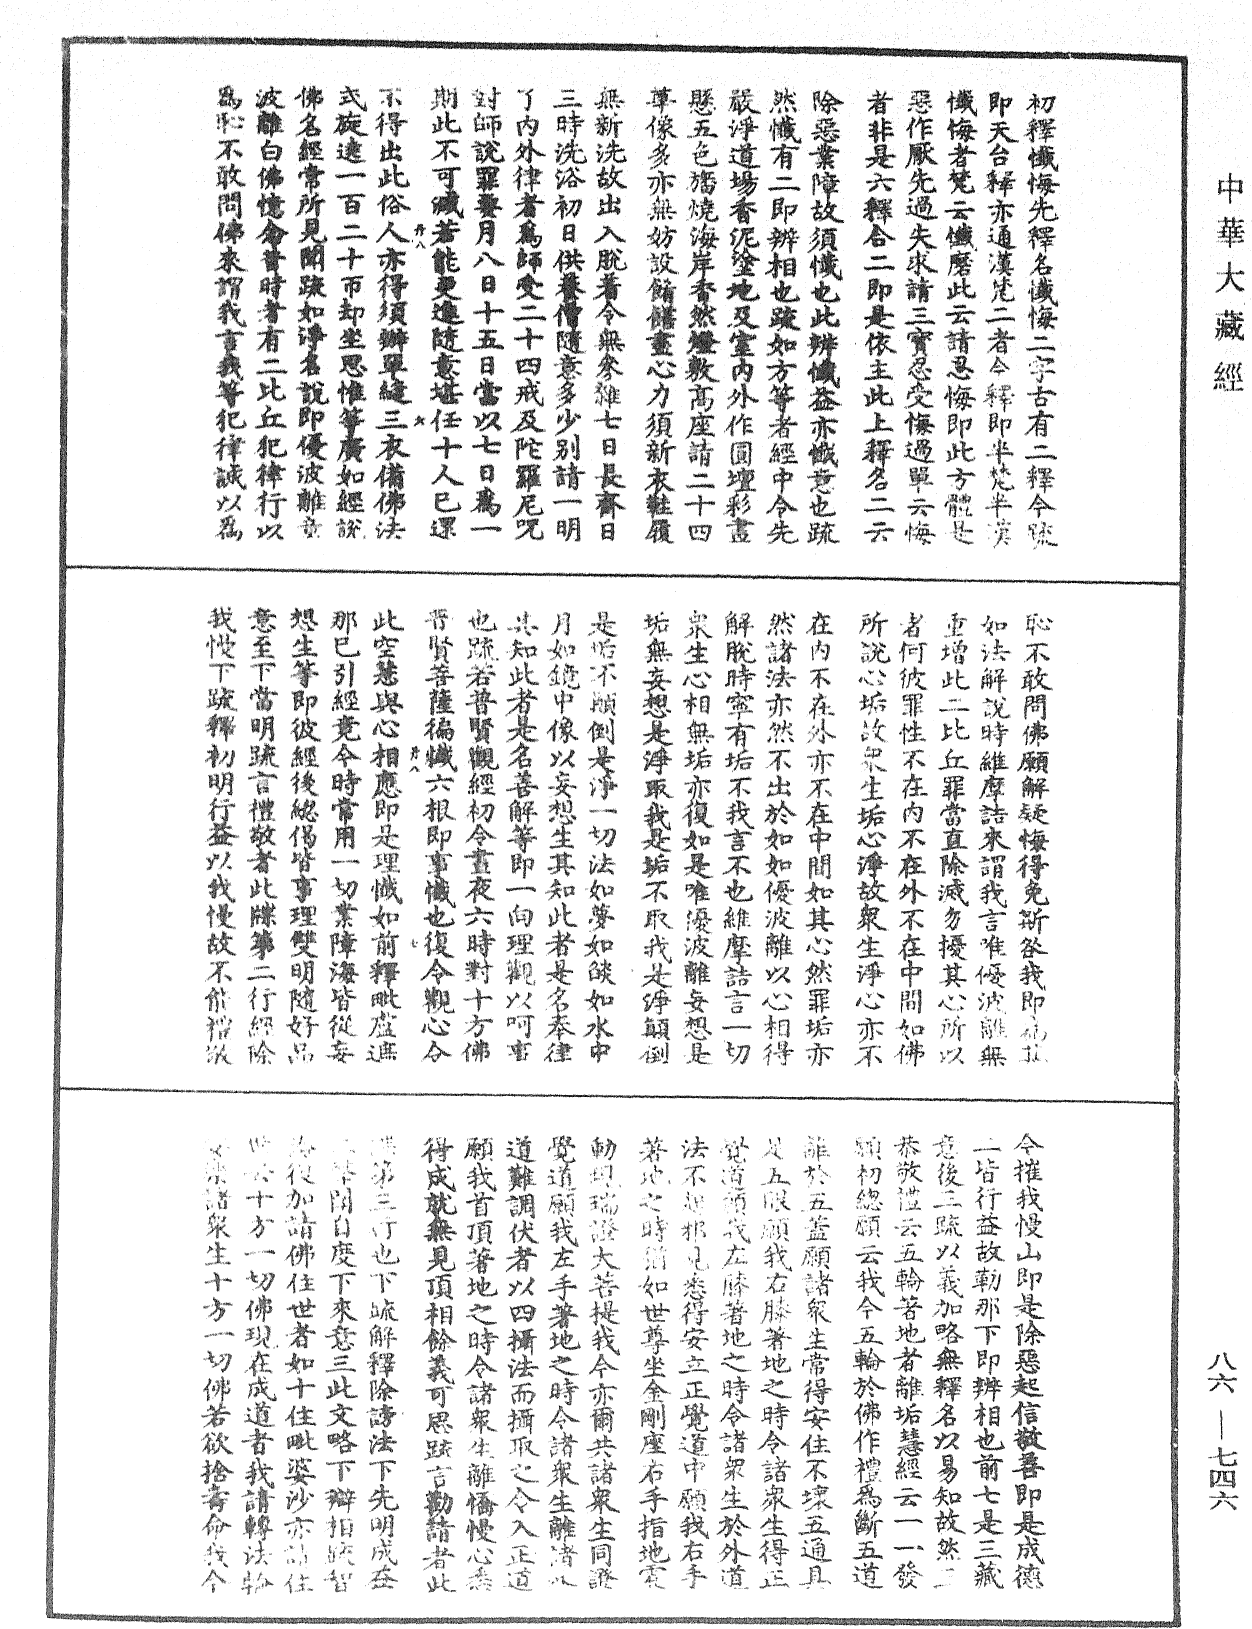 中華大藏經
初釋懺悔先釋名懺悔二字古有二釋今疏
即天台釋亦通漢梵二者今釋即半梵半漢
懺悔者梵云懺磨此云請忍悔即此方體是
惡作厭先過失求請三寶忍受悔過單云悔
者非是六釋合二即是依主此上釋名二云
除惡業障故須懺也此辨懺益亦懺意也疏
然懺有二即辨相也疏如方等者經中令先
嚴淨道場香泥塗地及室內外作圓壇彩畫
懸五色旛燒海岸香然燈敷高座請二十四
尊像多亦無妨設餚饍盡心力須新衣鞋履
無新洗故出入脫著令無參雜七日長齋日
三時洗浴初日供養僧隨意多少別請一明
了內外律者為師受二十四戒及陀羅尼呪
對師說罪要月八日十五日當以七日為一
期此不可減若能更進隨意堪任十人已還
不得出此俗人亦得須辦單縫三衣備佛法
式旋遶一百二十帀却坐思惟等廣如經說
佛名經常所見聞疏如淨名說即優波離章
波離白佛憶念昔時者有二比丘犯律行以
為恥不敢問佛來謂我言我等犯律誠以為
恥不敢問佛願解疑悔得免斯咎我即為其
如法解說時維摩詰來謂我言唯優波離無
重增此二比丘罪當直除滅勿擾其心所以
者何彼罪性不在內不在外不在中間如佛
所說心垢故眾生垢心淨故眾生淨心亦不
在內不在外亦不在中間如其心然罪垢亦
然諸法亦然不出於如如優波離以心相得
解脫時寧有垢不我言不也維摩詰言一切
眾生心相無垢亦復如是唯優波離妄想是
垢無妄想是淨取我是垢不取我是淨顛倒
是垢不顛倒是淨一切法如夢如燄如水中
月如鏡中像以妄想生其知此者是名奉律
其知此者是名善解等即一向理觀以呵事
也疏若普賢觀經初令晝夜六時對十方佛
普賢菩薩徧懺六根即事懺也復令觀心令
此空慧與心相應即是理懺如前釋毗盧遮
那已引經竟今時常用一切業障海皆從妄
想生等即彼經後總偈皆事理雙明隨好品
意至下當明疏言禮敬者此牒第二行經除
我慢下疏釋初明行益以我慢故不能禮敬
令摧我慢山即是除惡起信敬善即是成德
二皆行益故勒那下即辨相也前七是三藏
意後三疏以義加略無釋名以易知故然二
恭敬禮云五輪著地者離垢慧經云一一發
願初總願云我今五輪於佛作禮為斷五道
離於五蓋願諸眾生常得安住不壞五通具
足五眼願我右膝著地之時令諸眾生得正
覺道願我左膝著地之時令諸眾生於外道
法不起邪見悉得安立正覺道中願我右手
著地之時猶如世尊坐金剛座右手指地震
動現瑞證大菩提我今亦爾共諸眾生同證
覺道願我左手著地之時令諸眾生離諸外
道難調伏者以四攝法而攝取之令入正道
願我首頂著地之時令諸眾生離憍慢心悉
得成就無見頂相餘義可思疏言勸請者此
牒第三行也下疏解釋除謗法下先明成益
聞自度下來意三此文略下辯相疏智
復加請佛住世者如十住毗婆沙亦請住
十方一切佛現在成道者我請轉法輪
諸眾生十方一切佛若欲捨壽命我今
八六—七四六